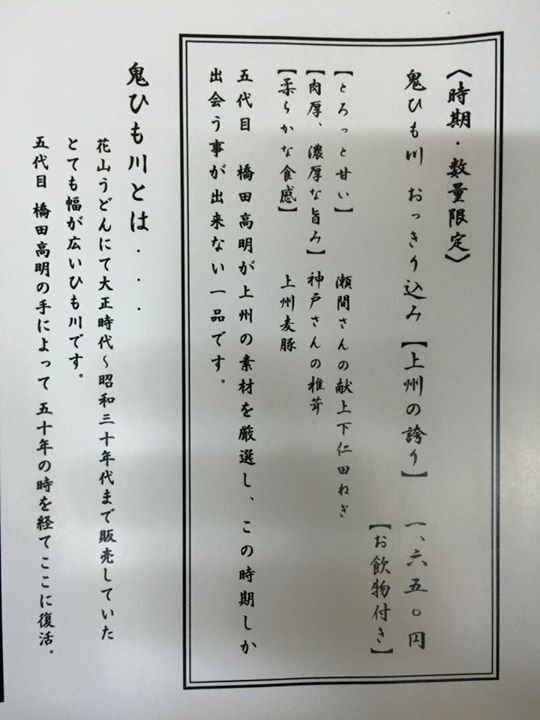 〈時期・数量限定〉
鬼ひも川 おっきり込み【上州の誇り】 一、六五〇円
【お飲物付き】
【とろっと甘い】 瀬間さんの献上下仁田ねぎ
【肉厚、濃厚な旨み】神戸さんの椎茸
【柔らかな食感】 上州麦豚
五代目 橋田高明が上州の素材を厳選し、この時期しか
出会う事が出来ない一品です。
鬼ひも川とは・・・
花山うどんにて大正時代～昭和三十年代まで販売していた
とても幅が広いひも川です。
五代目 橋田高明の手によって 五十年の時を経てここに復活。